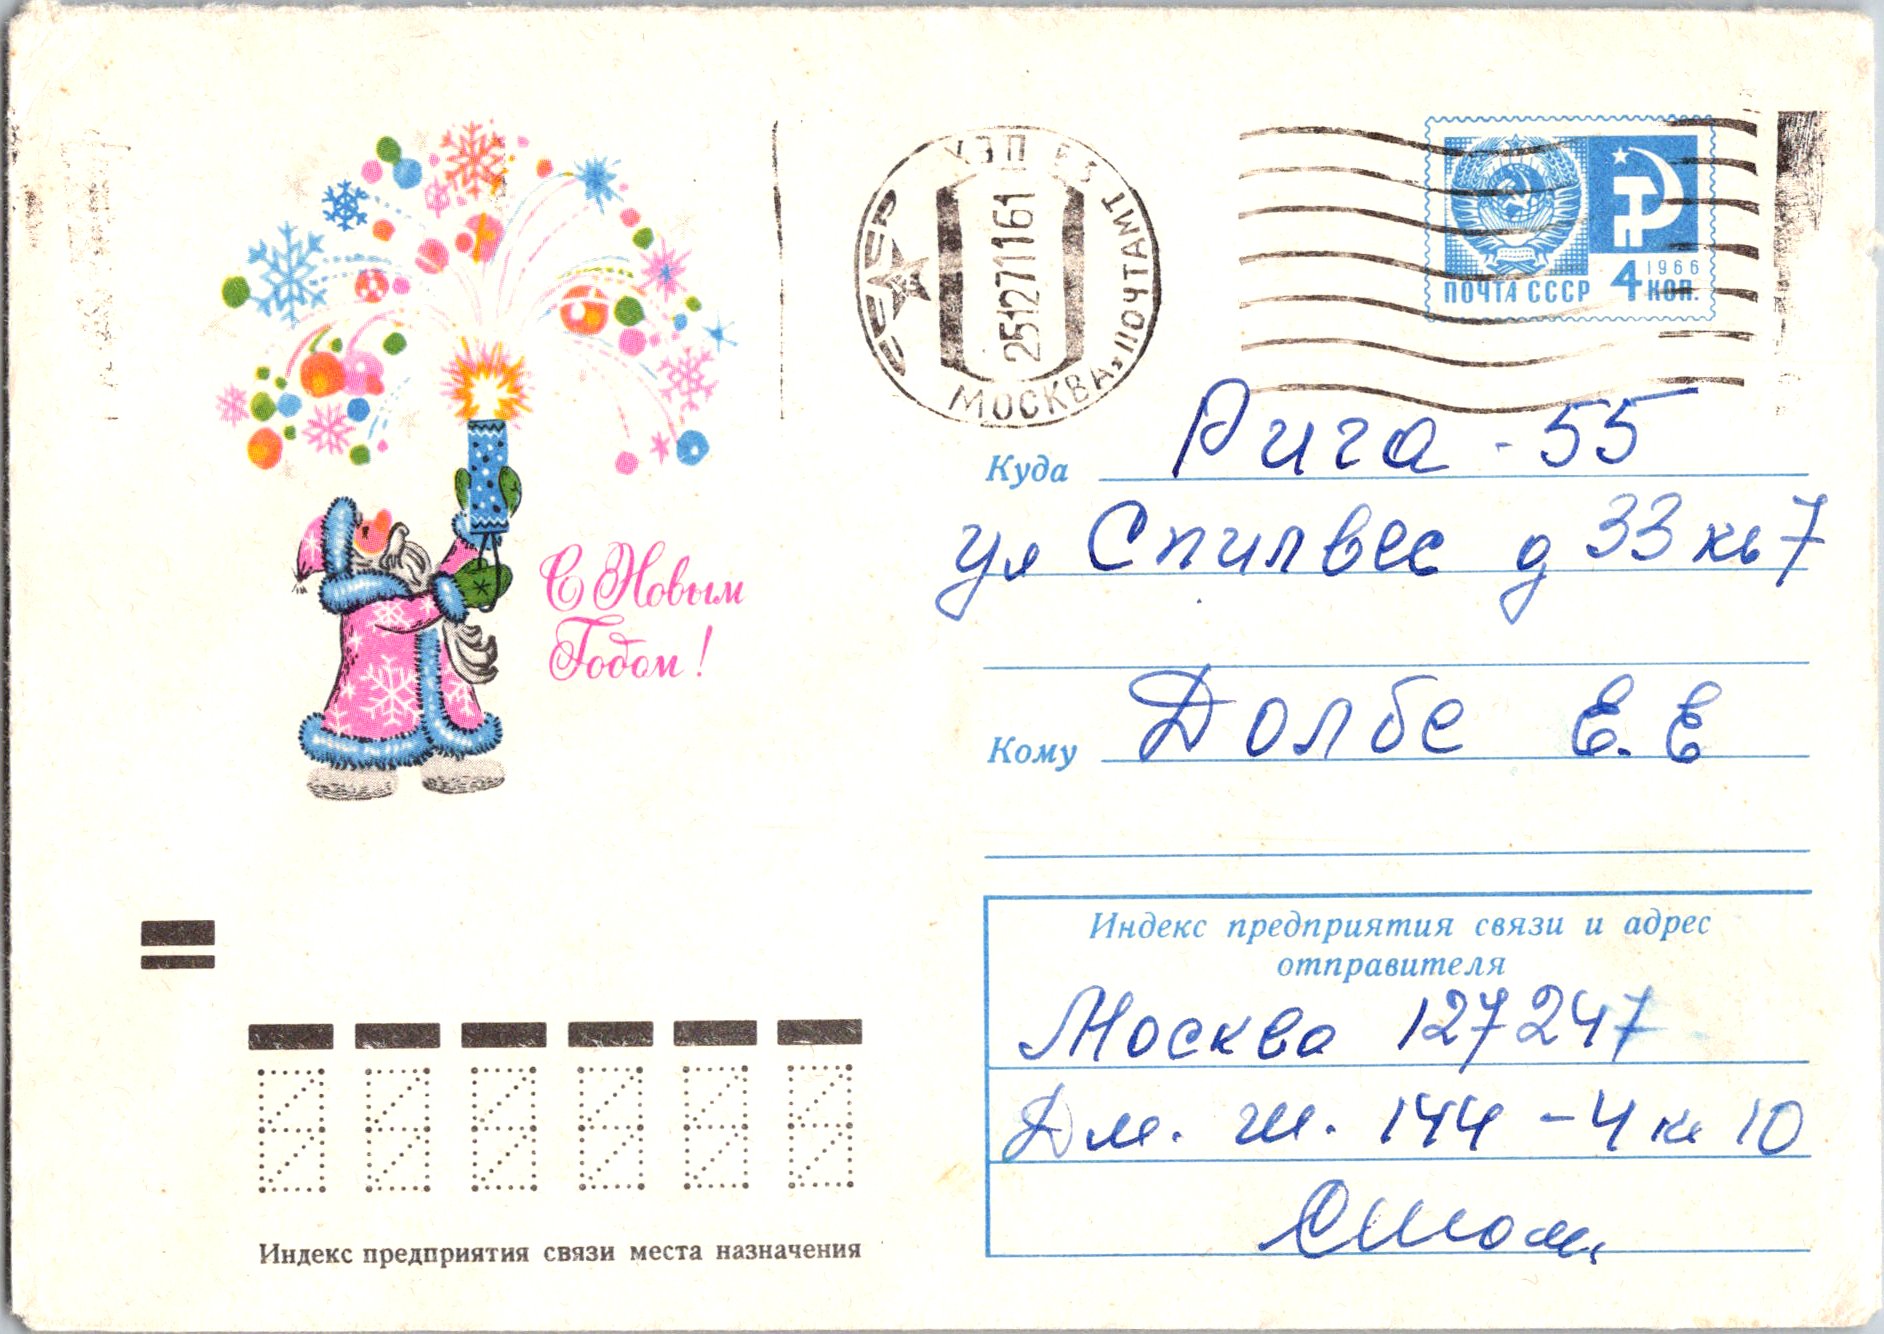 С Новым
Годом!
МОСКВА „ПОЧТАМТ
25127116 1
1966
ПОЧТА СССР 4 КОП.
Куда Рига - 55
ул Спилвес д 33 кв 7
Кому Долбе Е. Е
Индекс предприятия связи и адрес
отправителя
Москва 127247
Дм. ш. 144 - 4 кв 10
Индекс предприятия связи места назначения